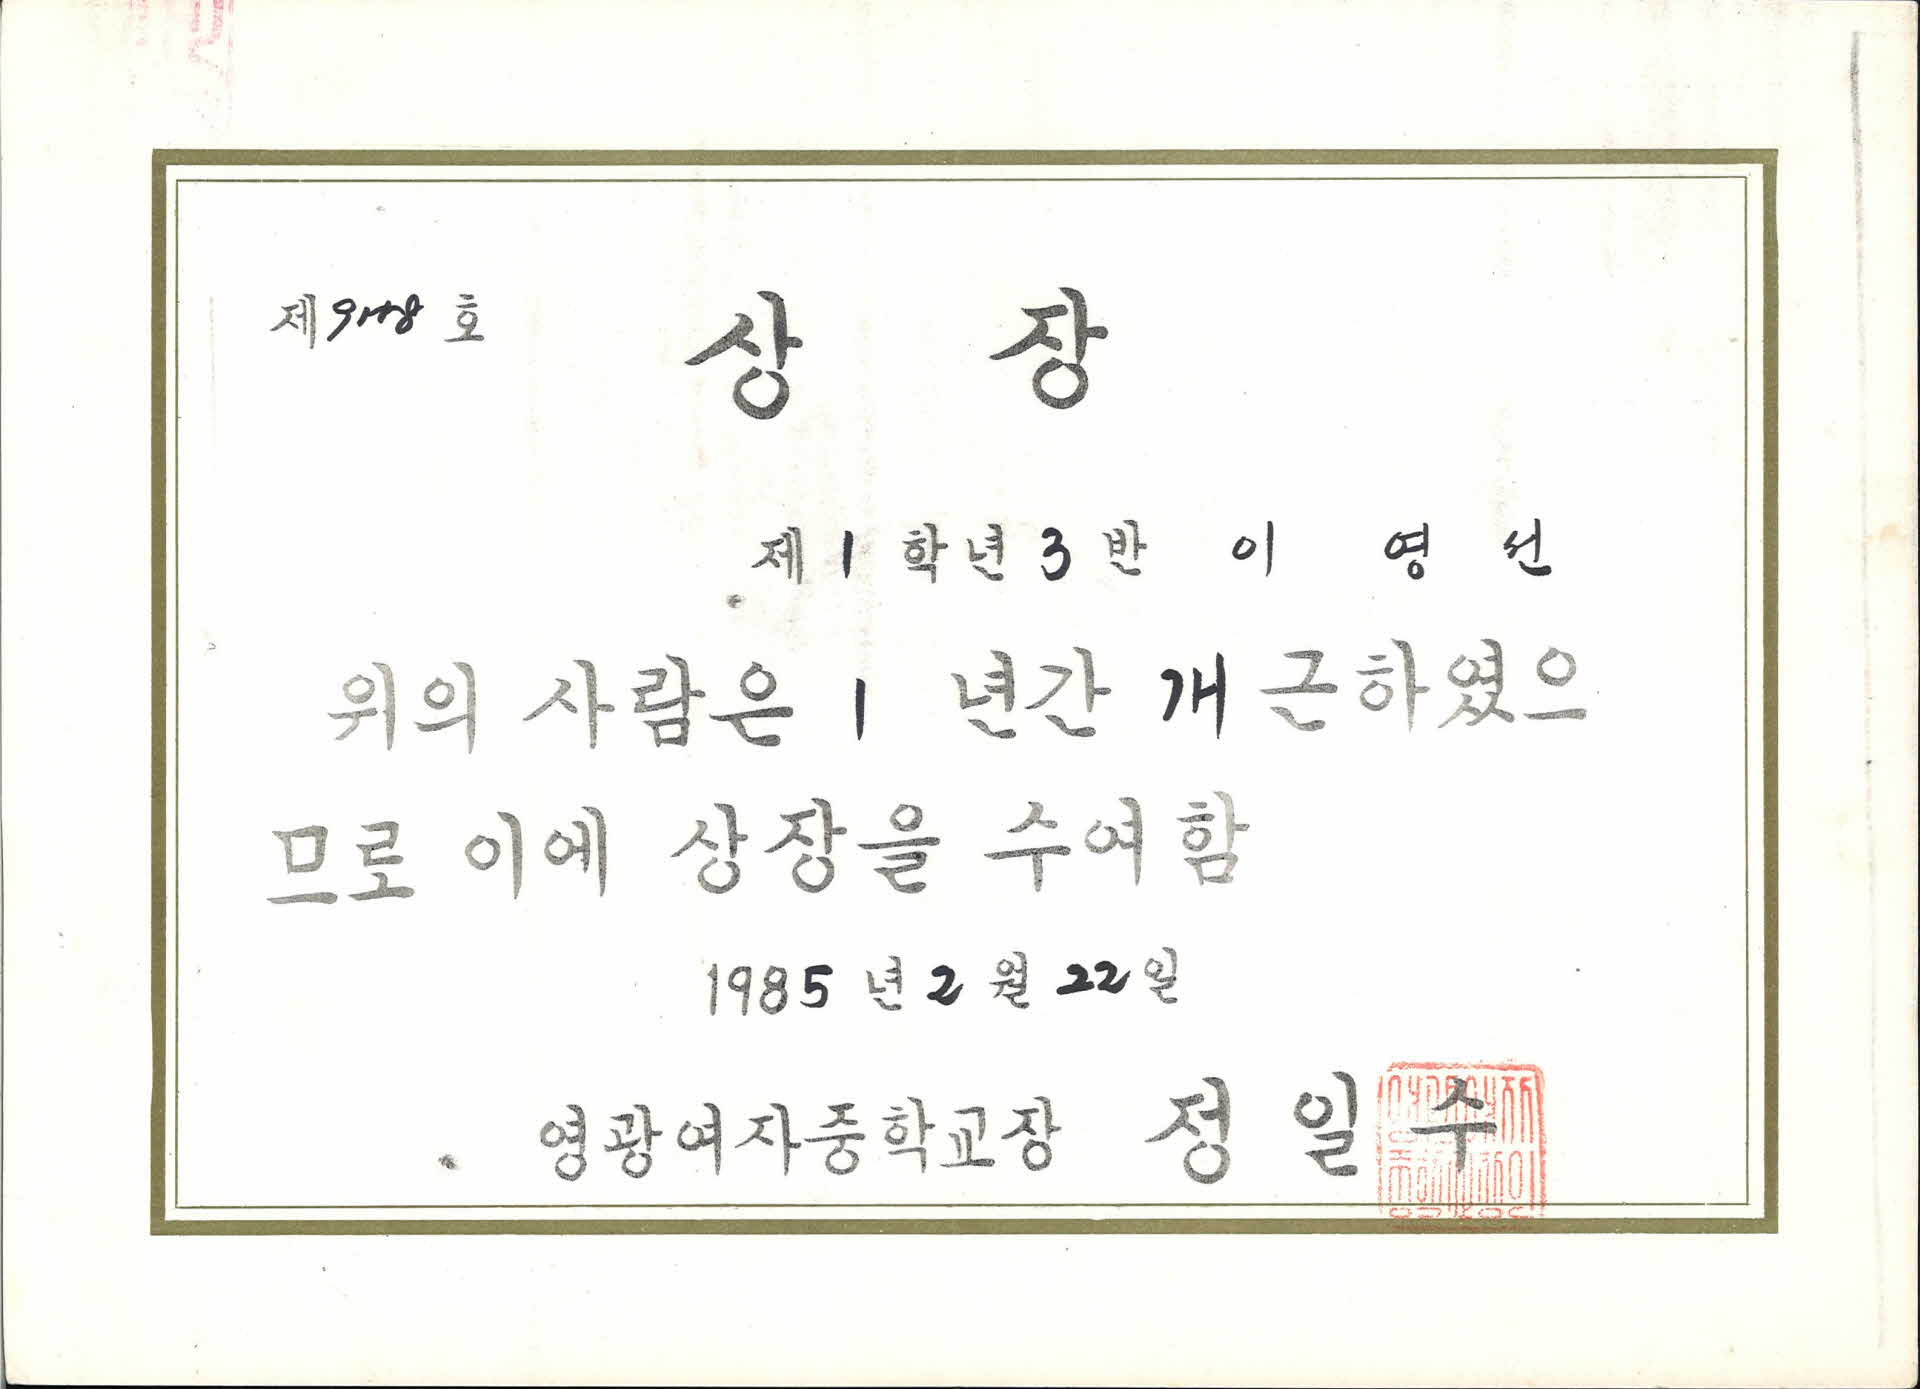 제 호
상 장
제 1 학년 3 반 이 영 선
위의 사람은 1 년간 개근하였으
므로 이에 상장을 수여함
1985년 2 월 22일
영광여자중학교장 정 일 수